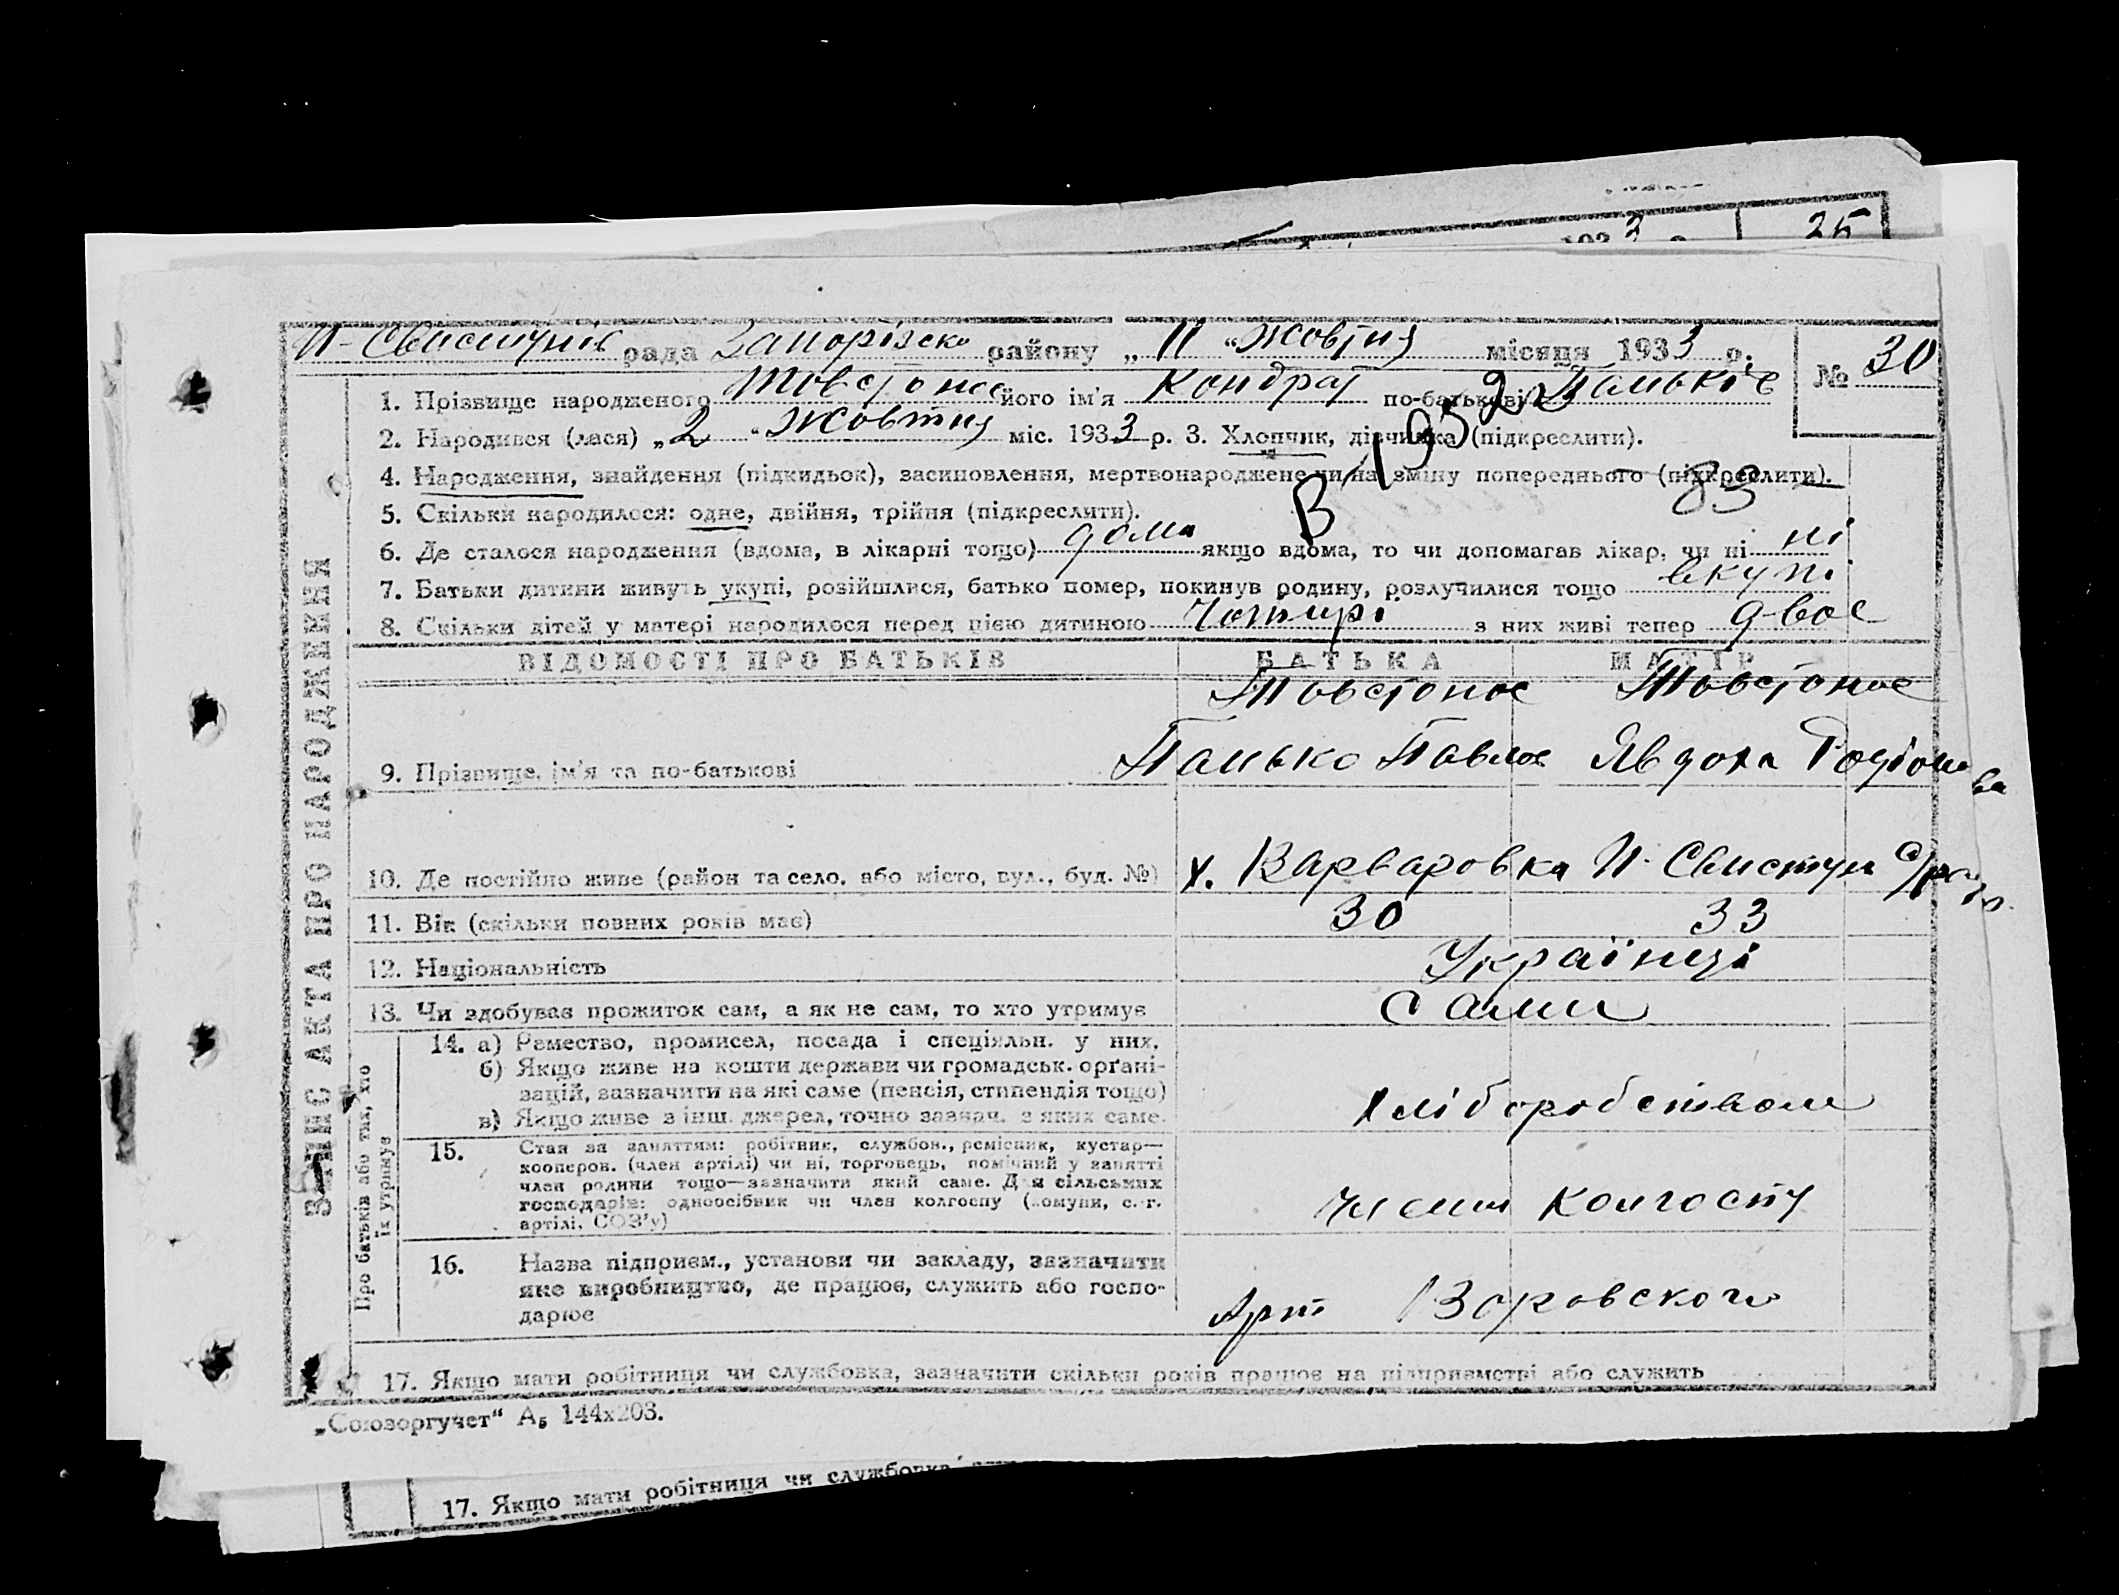 193 3 р. 25
Н-Свистунів рада Запорізько району „ 11 “ Жовтня місяця 1933 р. № 30
1. Прізвище народженого Товстонос його ім'я Кондрат по-батькові Паньків
2. Народився (лася) „ 2 “ Жовтня міс. 1933 р. 3. Хлопчик, дівчинка (підкреслити).
4. Народження, знайдення (підкидьок), засиновлення, мертвонароджене чи на зміну попереднього (підкреслити).
В-1952
83
5. Скільки народилося: одне, двійня, трійня (підкреслити).
6. Де сталося народження (вдома, в лікарні тощо) дома якщо вдома, то чи допомагав лікар, чи ні ні
7. Батьки дитини живуть укупі, розійшлися, батько помер, покинув родину, розлучилися тощо вкупі
8. Скільки дітей у матері народилося перед цією дитиною Чотирі з них живі тепер двоє
ВІДОМОСТІ ПРО БАТЬКІВ БАТЬКА МАТІР
Товстонос Товстонос
9. Прізвище, ім'я та по-батькові Панько Павлов Явдоха Родіонова
10. Де постійно живе (район та село, або місто, вул., буд. №) х. Варваровка Н-Свистун с/ради
11. Вік (скільки повних років має) 30 33
12. Національність Українці
13. Чи здобуває прожиток сам, а як не сам, то хто утримує Сами
14. а) Ремество, промисел, посада і спеціяльн. у них.
б) Якщо живе на кошти держави чи громадськ. орґані-
зацій, зазначити на які саме (пенсія, стипендія тощо)
в) Якщо живе з інш. джерел, точно зазнач. з яких саме.
Хліборобством
15. Стан за заняттям: робітник, службов., ремісник, кустар—
кооперов. (член артілі) чи ні, торговець, помічний у занятті
член родини тощо—зазначити який саме. Для сільських
господарів: одноосібник чи член колгоспу (комуни, с.-г.
артілі, СОЗ'у)
члени колгоспу
16. Назва підприєм., установи чи закладу, зазначити
яке виробництво, де працює, служить або госпо-
дарює
Арт Воровского
17. Якщо мати робітниця чи службовка, зазначити скільки років працює на підприємстві або служить
ЗАПИС АКТА ПРО НАРОДЖЕННЯ
Про батьків або тих, хто
їх утримує
„Союзоргучет“ А₅ 144х203.
17. Якщо мати робітниця чи службовка